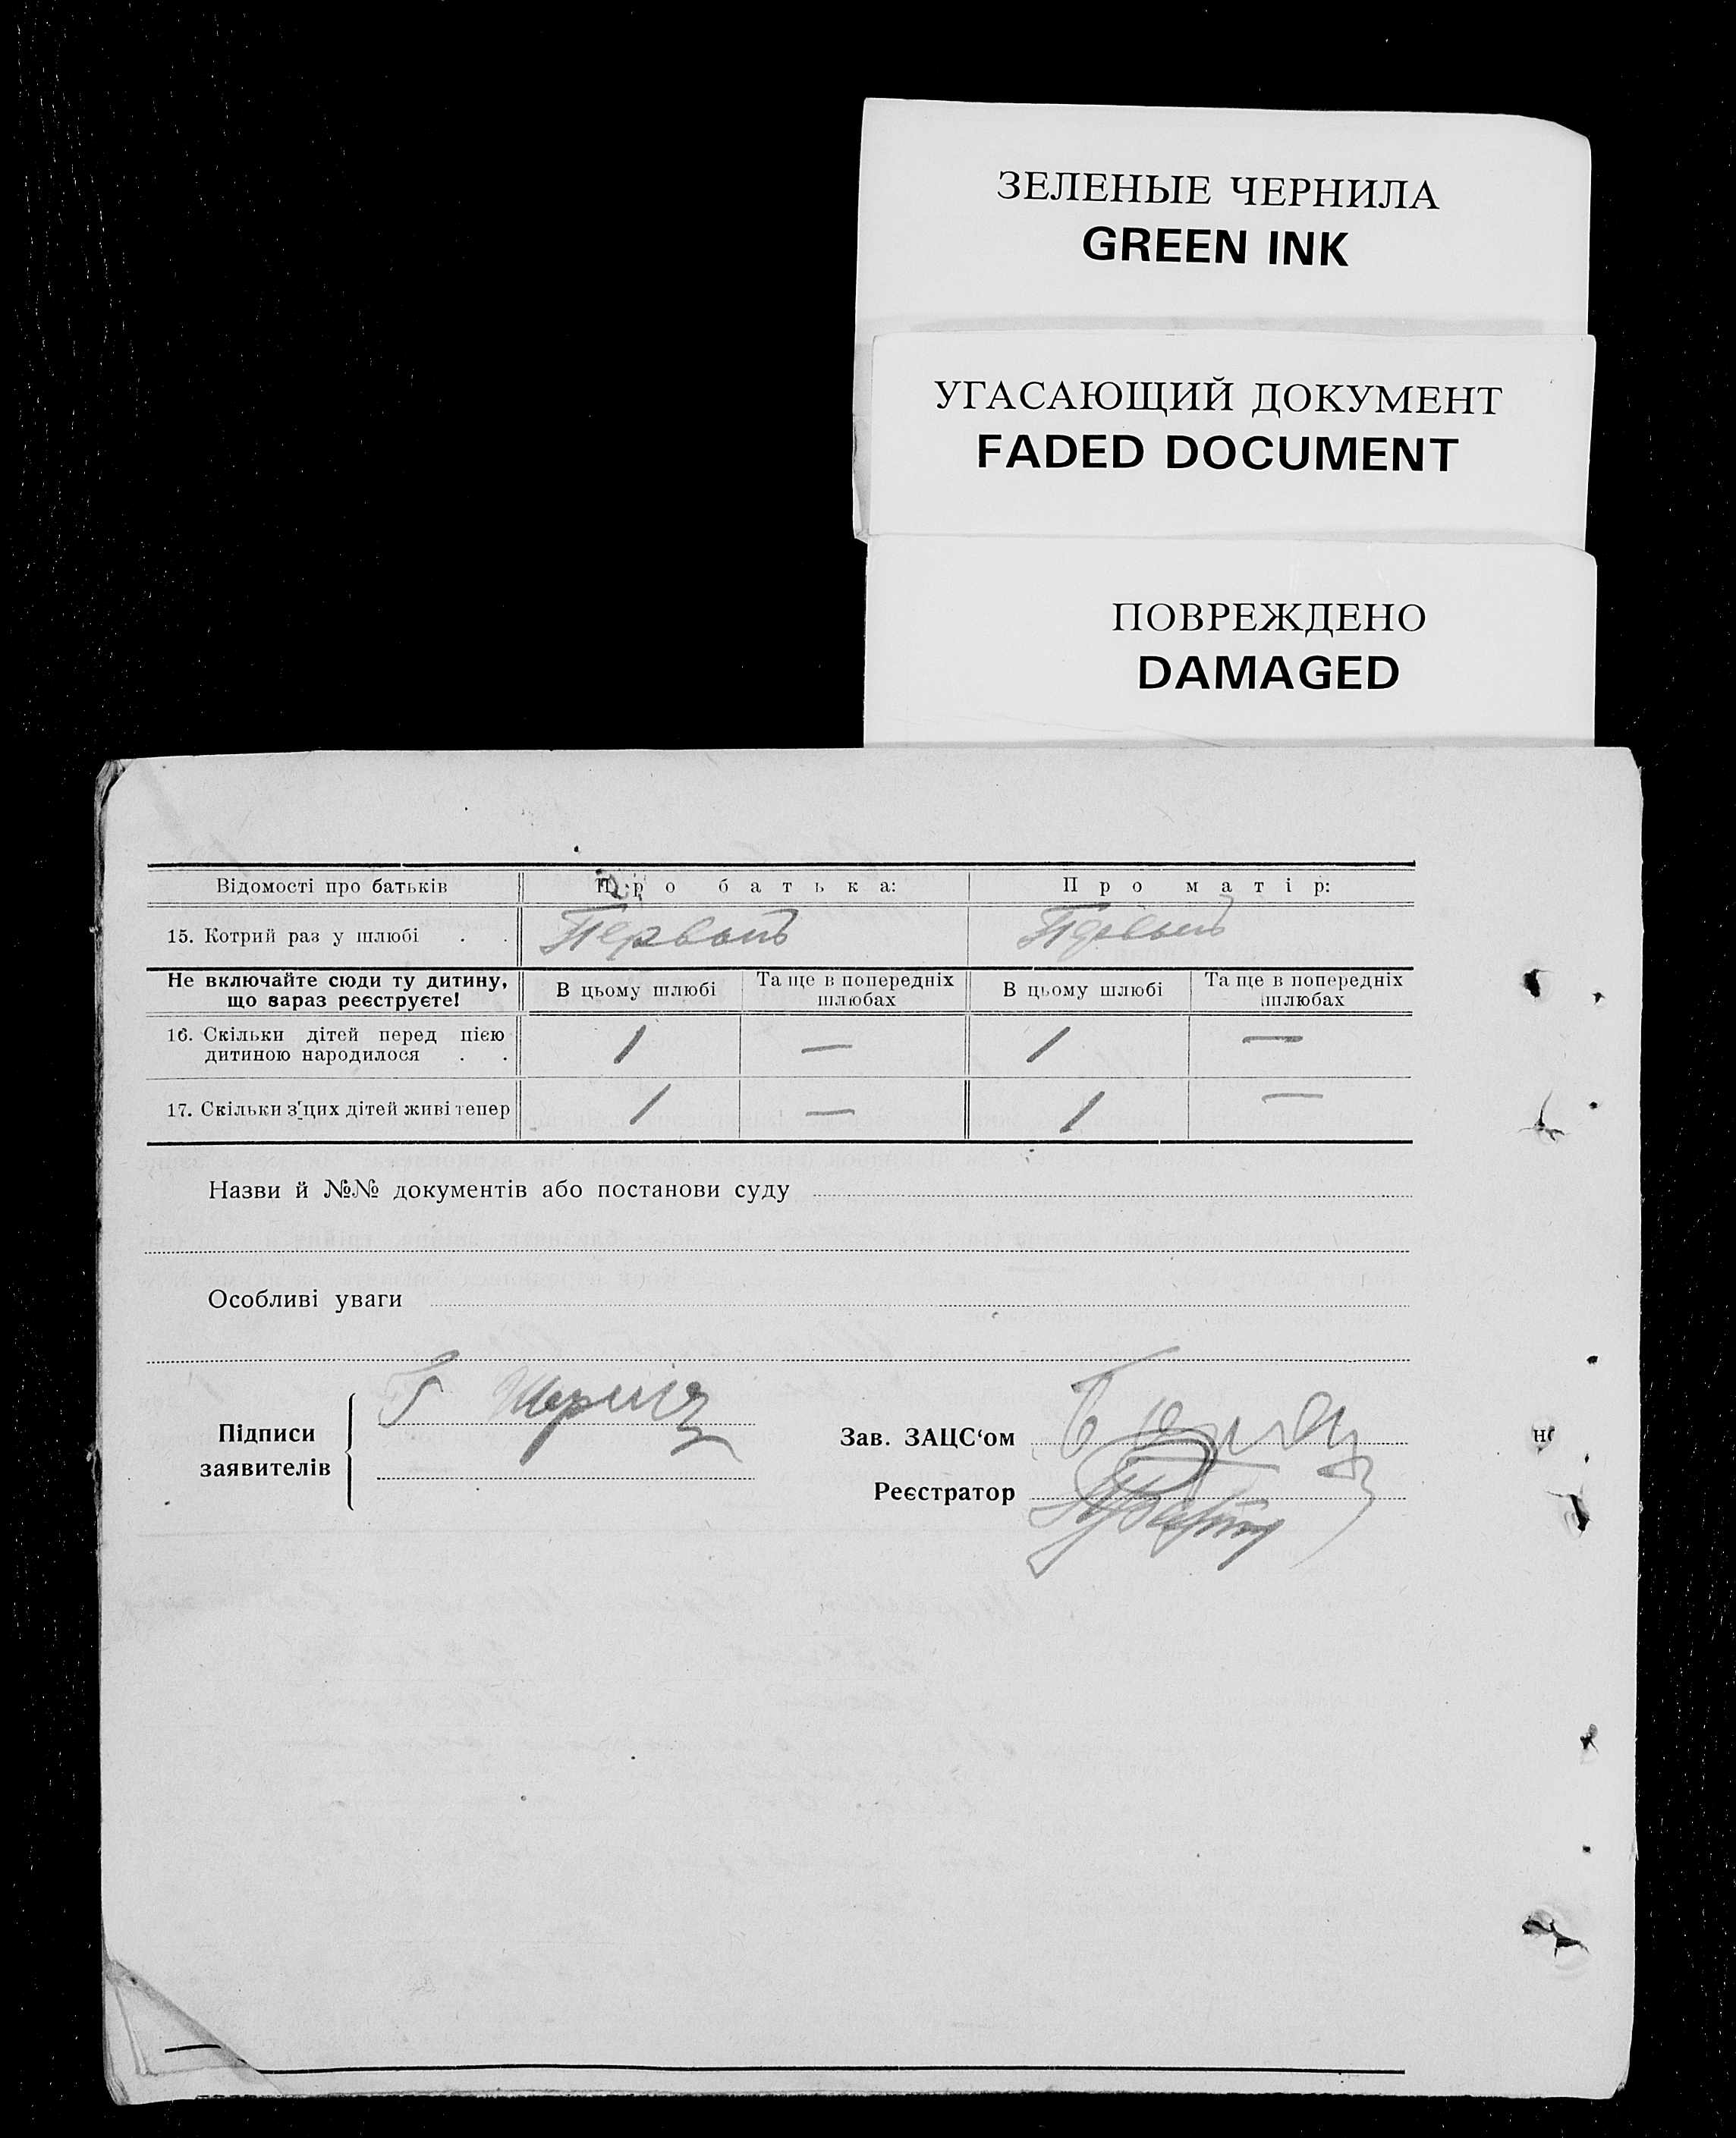 ЗЕЛЕНЫЕ ЧЕРНИЛА
GREEN INK
УГАСАЮЩИЙ ДОКУМЕНТ
FADED DOCUMENT
ПОВРЕЖДЕНО
DAMAGED
Відомості про батьків Про батька: Про матір:
15. Котрий раз у шлюбі . . Первый Первый
Не включайте сюди ту дитину, що зараз реєструєте! В цьому шлюбі Та ще в попередніх шлюбах В цьому шлюбі Та ще в попередніх шлюбах
16. Скільки дітей перед цією
дитиною народилося . . 1 — 1 —
17. Скільки з цих дітей живі тепер 1 — 1 —
Назви й №№ документів або постанови суду
Особливі уваги
Підписи
заявителів
Зав. ЗАЦС‘ом
Реєстратор